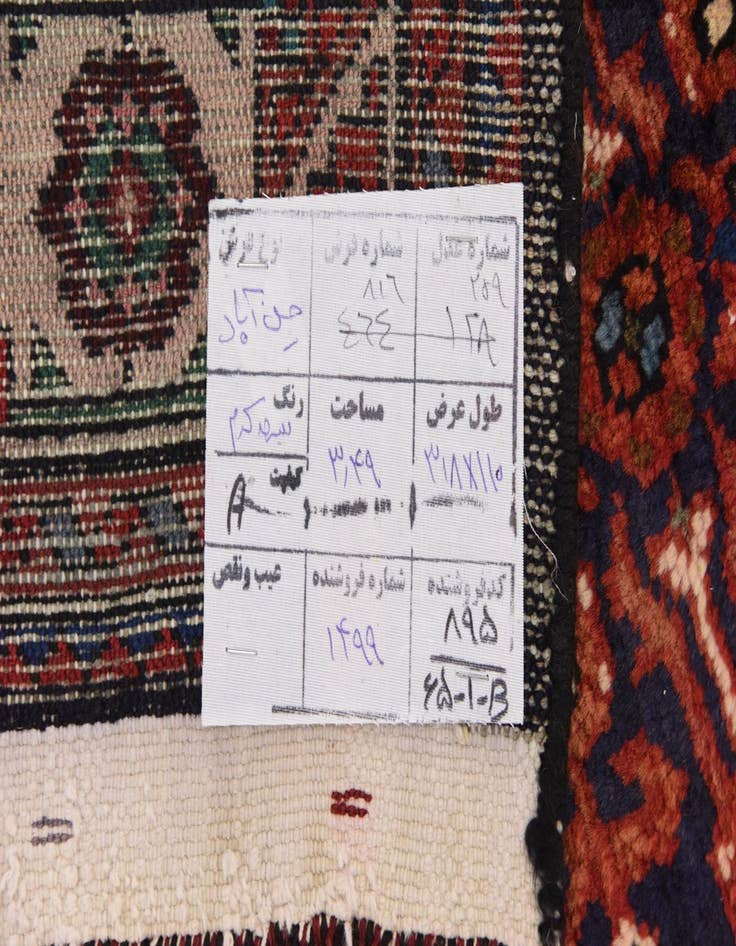 شماره عدل شماره فرش نوع فرش
۲۵۹ ۸۱۶ حسن آباد
۱۲۸ ۴۶۴
طول عرض مساحت رنگ
۳۱۸X۱۱۰ ۳/۴۹ کرم
کیفیت
A
کد فروشنده شماره فروشنده عیب و نقص
۸۹۵ ۱۴۹۹ —
۶۵-T-B